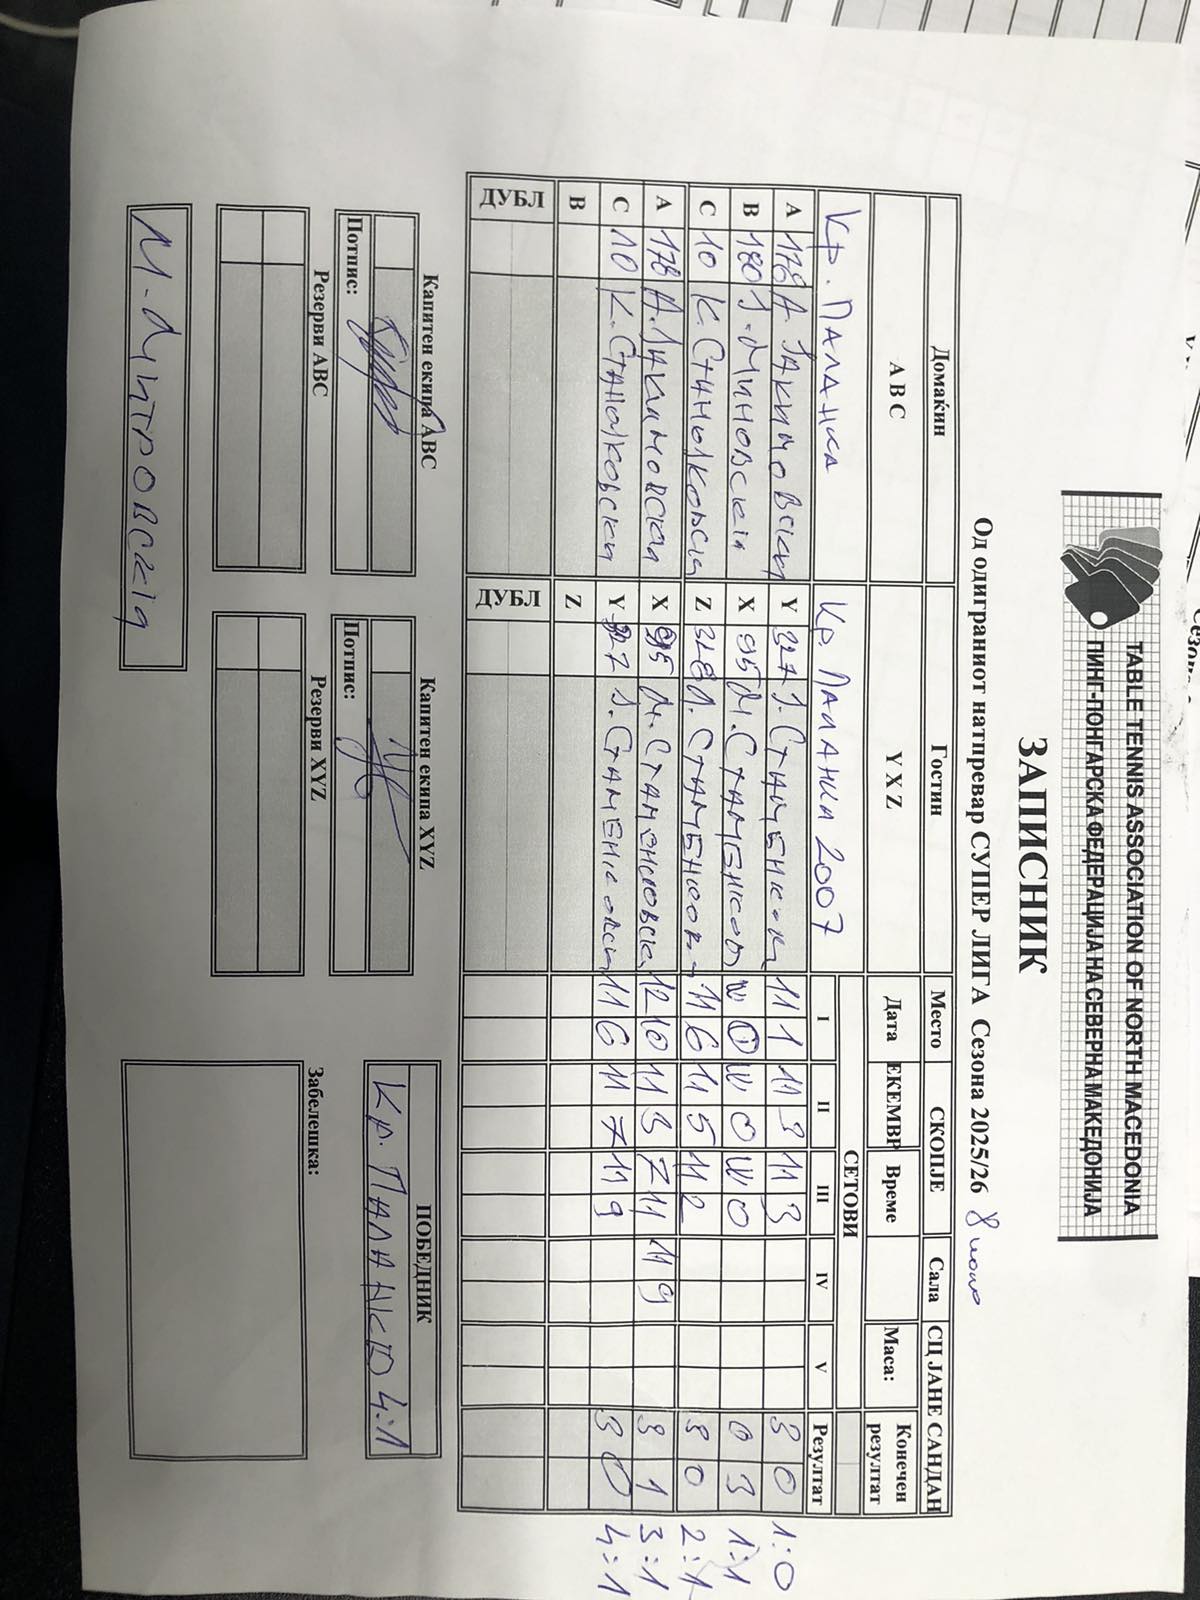 TABLE TENNIS ASSOCIATION OF NORTH MACEDONIA
ПИНГ-ПОНГАРСКА ФЕДЕРАЦИЈА НА СЕВЕРНА МАКЕДОНИЈА
ЗАПИСНИК
Од одиграниот натпревар СУПЕР ЛИГА Сезона 2025/26 8 коло
Домаќин Гостин Место СКОПЈЕ Сала СЦ ЈАНЕ САНДАН
А В С Y X Z Дата ЕКЕМВР Време Маса: Конечен резултат
СЕТОВИ
Кр. Паланка Кр. Паланка 2007 I II III IV V Резултат
A 178 А. Јакимовски Y 327 Ј. 11 1 11 3 11 3 3 0 1:0
B 180 Ј. Миновски X 95 М. W 0 W 0 W 0 0 3 1:1
C 10 К. Станолковски Z 328 11 6 11 5 11 2 3 0 2:1
A 178 А. Јакимовски X 95 М. Стаменковски 12 10 11 3 7 11 11 9 3 1 3:1
C 10 К. Станолковски Y 327 Ј. Стаменковски 11 6 11 7 11 9 3 0 4:1
B Z
ДУБЛ ДУБЛ
Капитен екипа ABC Капитен екипа XYZ ПОБЕДНИК
Потпис: Потпис: Кр. Паланка 4:1
Резерви ABC Резерви XYZ Забелешка:
М. Митровскa